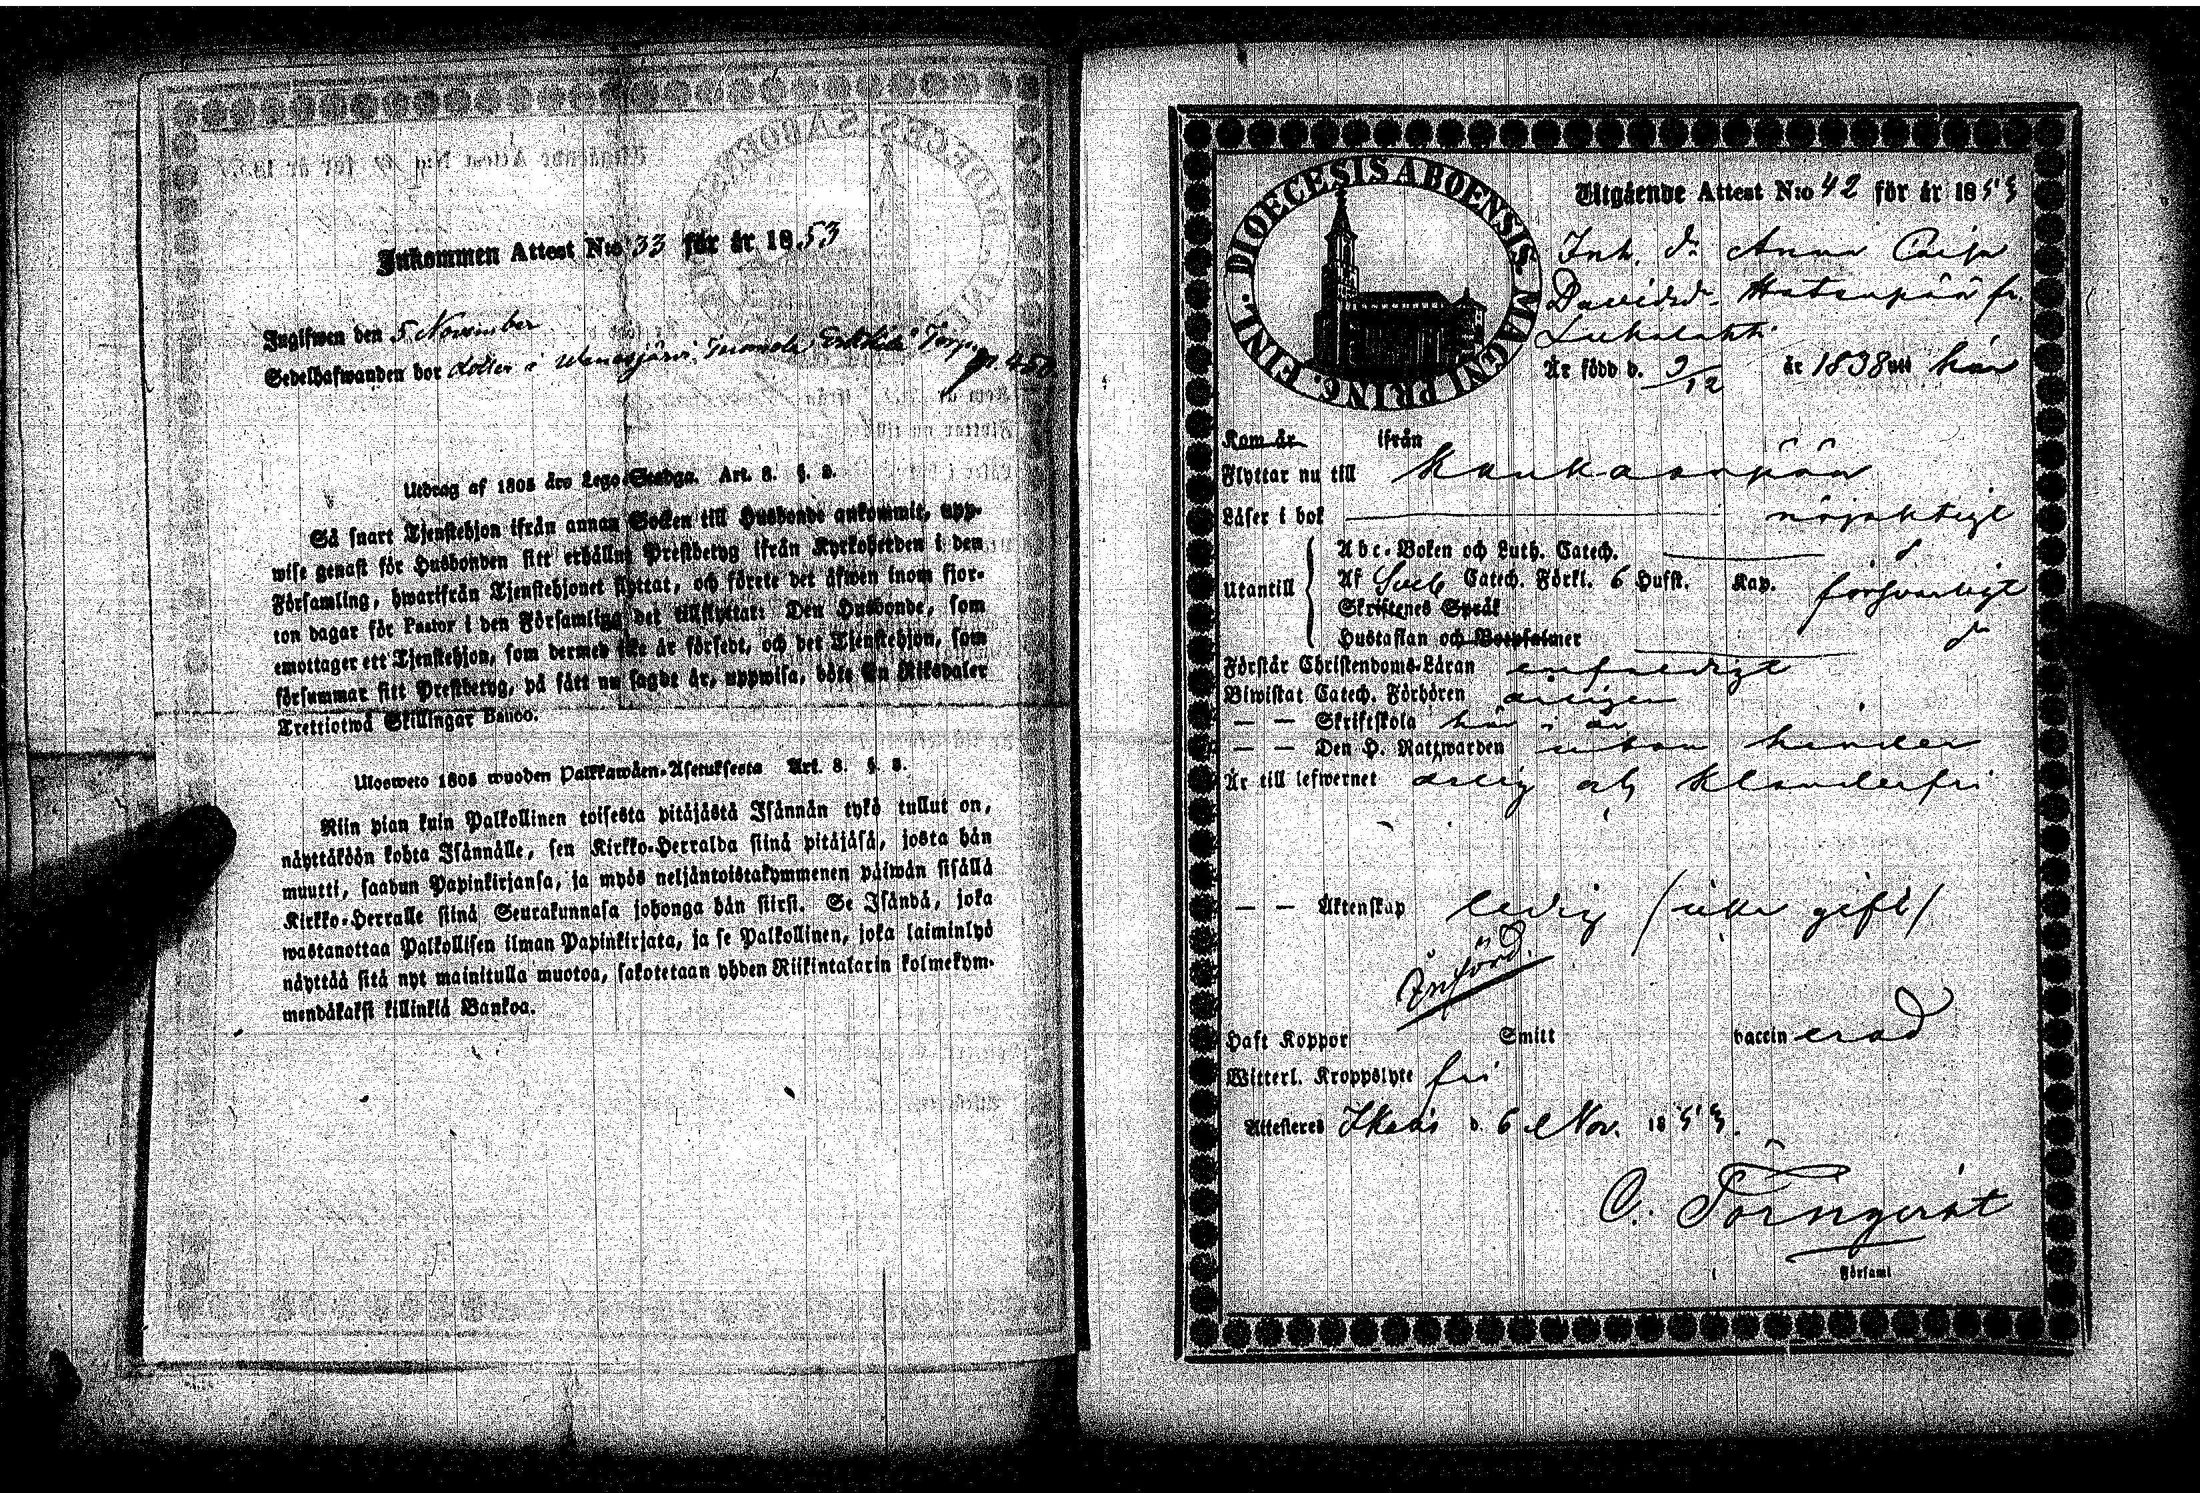 Inkommen Attest N:o 33 för år 1853
Ingifwen den 5 November
Sedelhafwanden bor
Utdrag af 1805 års Lego-Stadga. Art. 8. §. 3.
Så snart Tjenstehjon ifrån annan Socken till Husbonde ankommit, upp-
wise genast för Husbonden sitt erhållne Prestbetyg ifrån Kyrkoherden i den
Församling, hwarifrån Tjenstehjonet flyttat, och förete det äfwen inom fjor-
ton dagar för Pastor i den Församling det tillflyttat: Den Husbonde, som
emottager ett Tjenstehjon, som dermed icke är försedt, och det Tjenstehjon, som
försummar sitt Prestbetyg, på sätt nu sagdt är, uppwisa, böte En Riksdaler
Trettiotwå Skillingar Banco.
Ulosweto 1805 wuoden Palkkawäen-Asetuksesta Art. 8. §. 3.
Niin pian kuin Palkollinen toisesta pitäjästä Isännän tykö tullut on,
näyttäköön kohta Isännälle, sen Kirkko-Herralda siinä pitäjäsä, josta hän
muutti, saadun Papinkirjansa, ja myös neljäntoistakymmenen päiwän sisällä
Kirkko-Herralle siinä Seurakunnasa johonga hän siirsi. Se Isändä, joka
wastanottaa Palkollisen ilman Papinkirjata, ja se Palkollinen, joka laiminlyö
näyttää sitä nyt mainitulla muotoa, sakotetaan yhden Riikintalarin kolmekym-
mendäkaksi killinkiä Bankoa.
DIOECESIS ABOENSIS MAGNI PRINC. FINL.
Utgående Attest N:o 42 för år 1853
Inh. dr Anna Caisa
Davidsd.
Är född d. 3/12 år 1838 uti här
Kom år ifrån
Flyttar nu till Kankaanpää
Läser i bok nöjaktigt
Utantill
Abc-Boken och Luth. Catech.
Af Sveb Catech. Förkl. 6 Hufst. Kap. försvarligt
Skriftenes Språk
Hustaflan och Botpsalmer
Förstår Christendoms-Läran enfaldigt
Biwistat Catech. Förhören årligen
— — Skriftskola här i år
— — Den H. Nattwarden utan hinder
Är till lefwernet ärlig och klanderfri
— — Äktenskap ledig (icke gift)
Införd.
Haft Koppor Smitt vaccinerad
Witterl. Kroppslyte fri
Attesteras Ikalis d. 6 Nov. 1853.
C. Törnqvist
i Församl